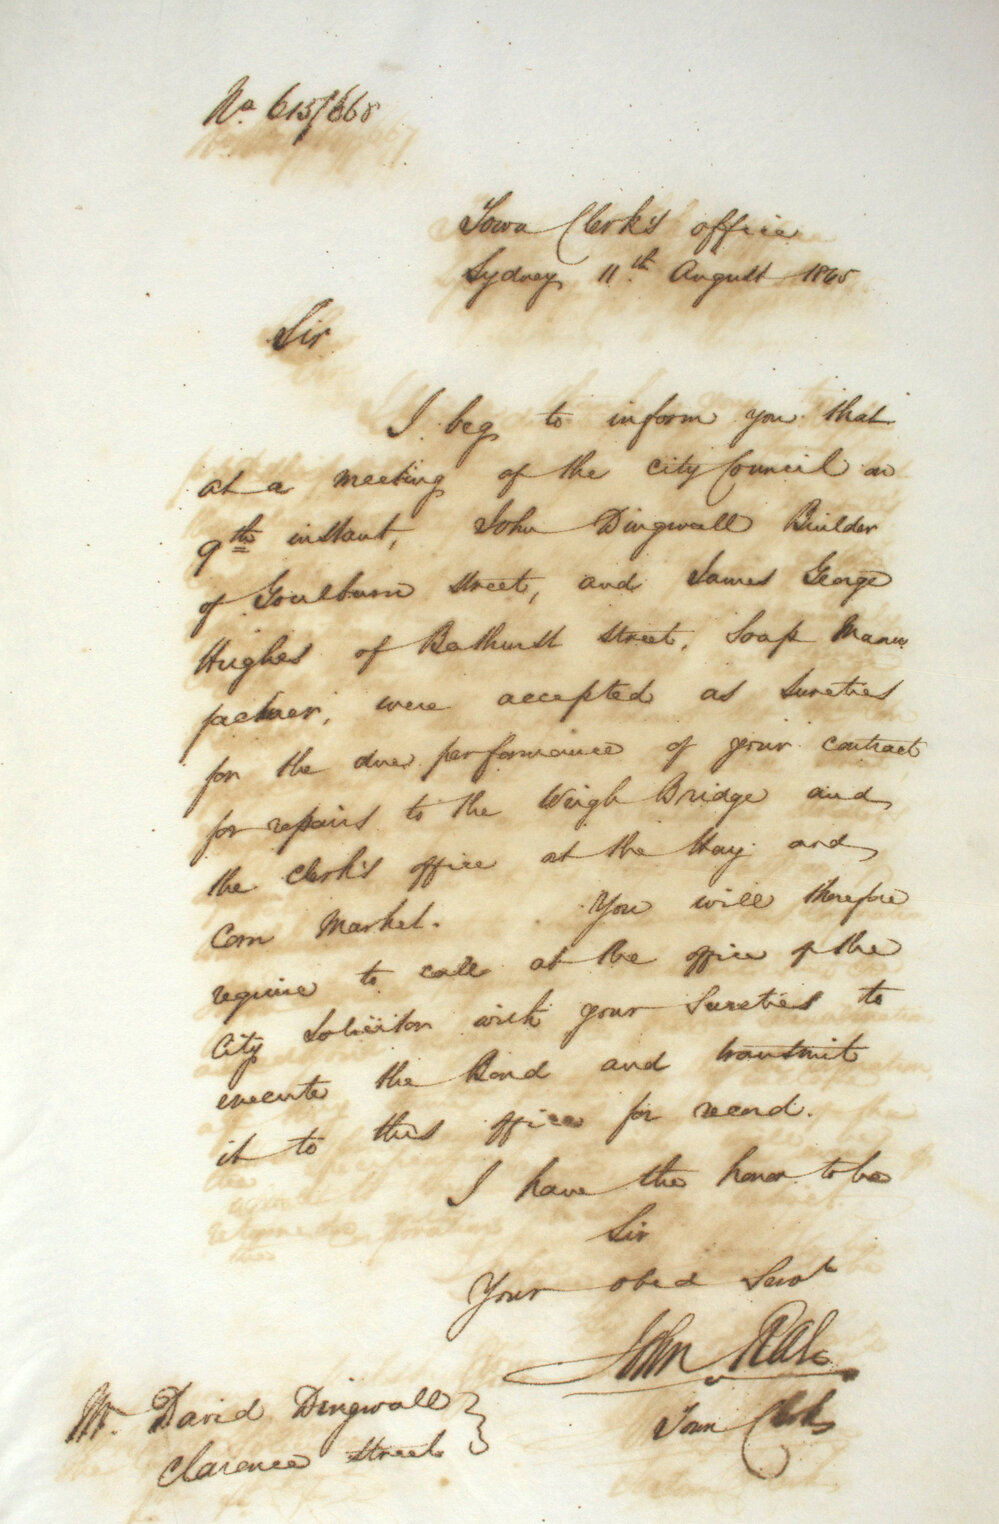 No. 615/668
Town Clerk's office
Sydney 11th August 1865
Sir
I beg to inform you that
at a meeting of the City Council on
9th instant, John Dingwall Builder
of Goulburn Street, and James George
Hughes of Bathurst Street, Soap Manu
facturer, were accepted as Sureties
for the due performance of your contract
for repairs to the Weigh Bridge and
the Clerk's office at the Hay and
Corn Market. You will therefore
require to call at the office of the
City Solicitor with your Sureties to
execute the Bond and transmit
it to this office for record.
I have the honor to be
Sir
Your obed Servt
John
Town Clerk
Mr. David Dingwall
Clarence Street